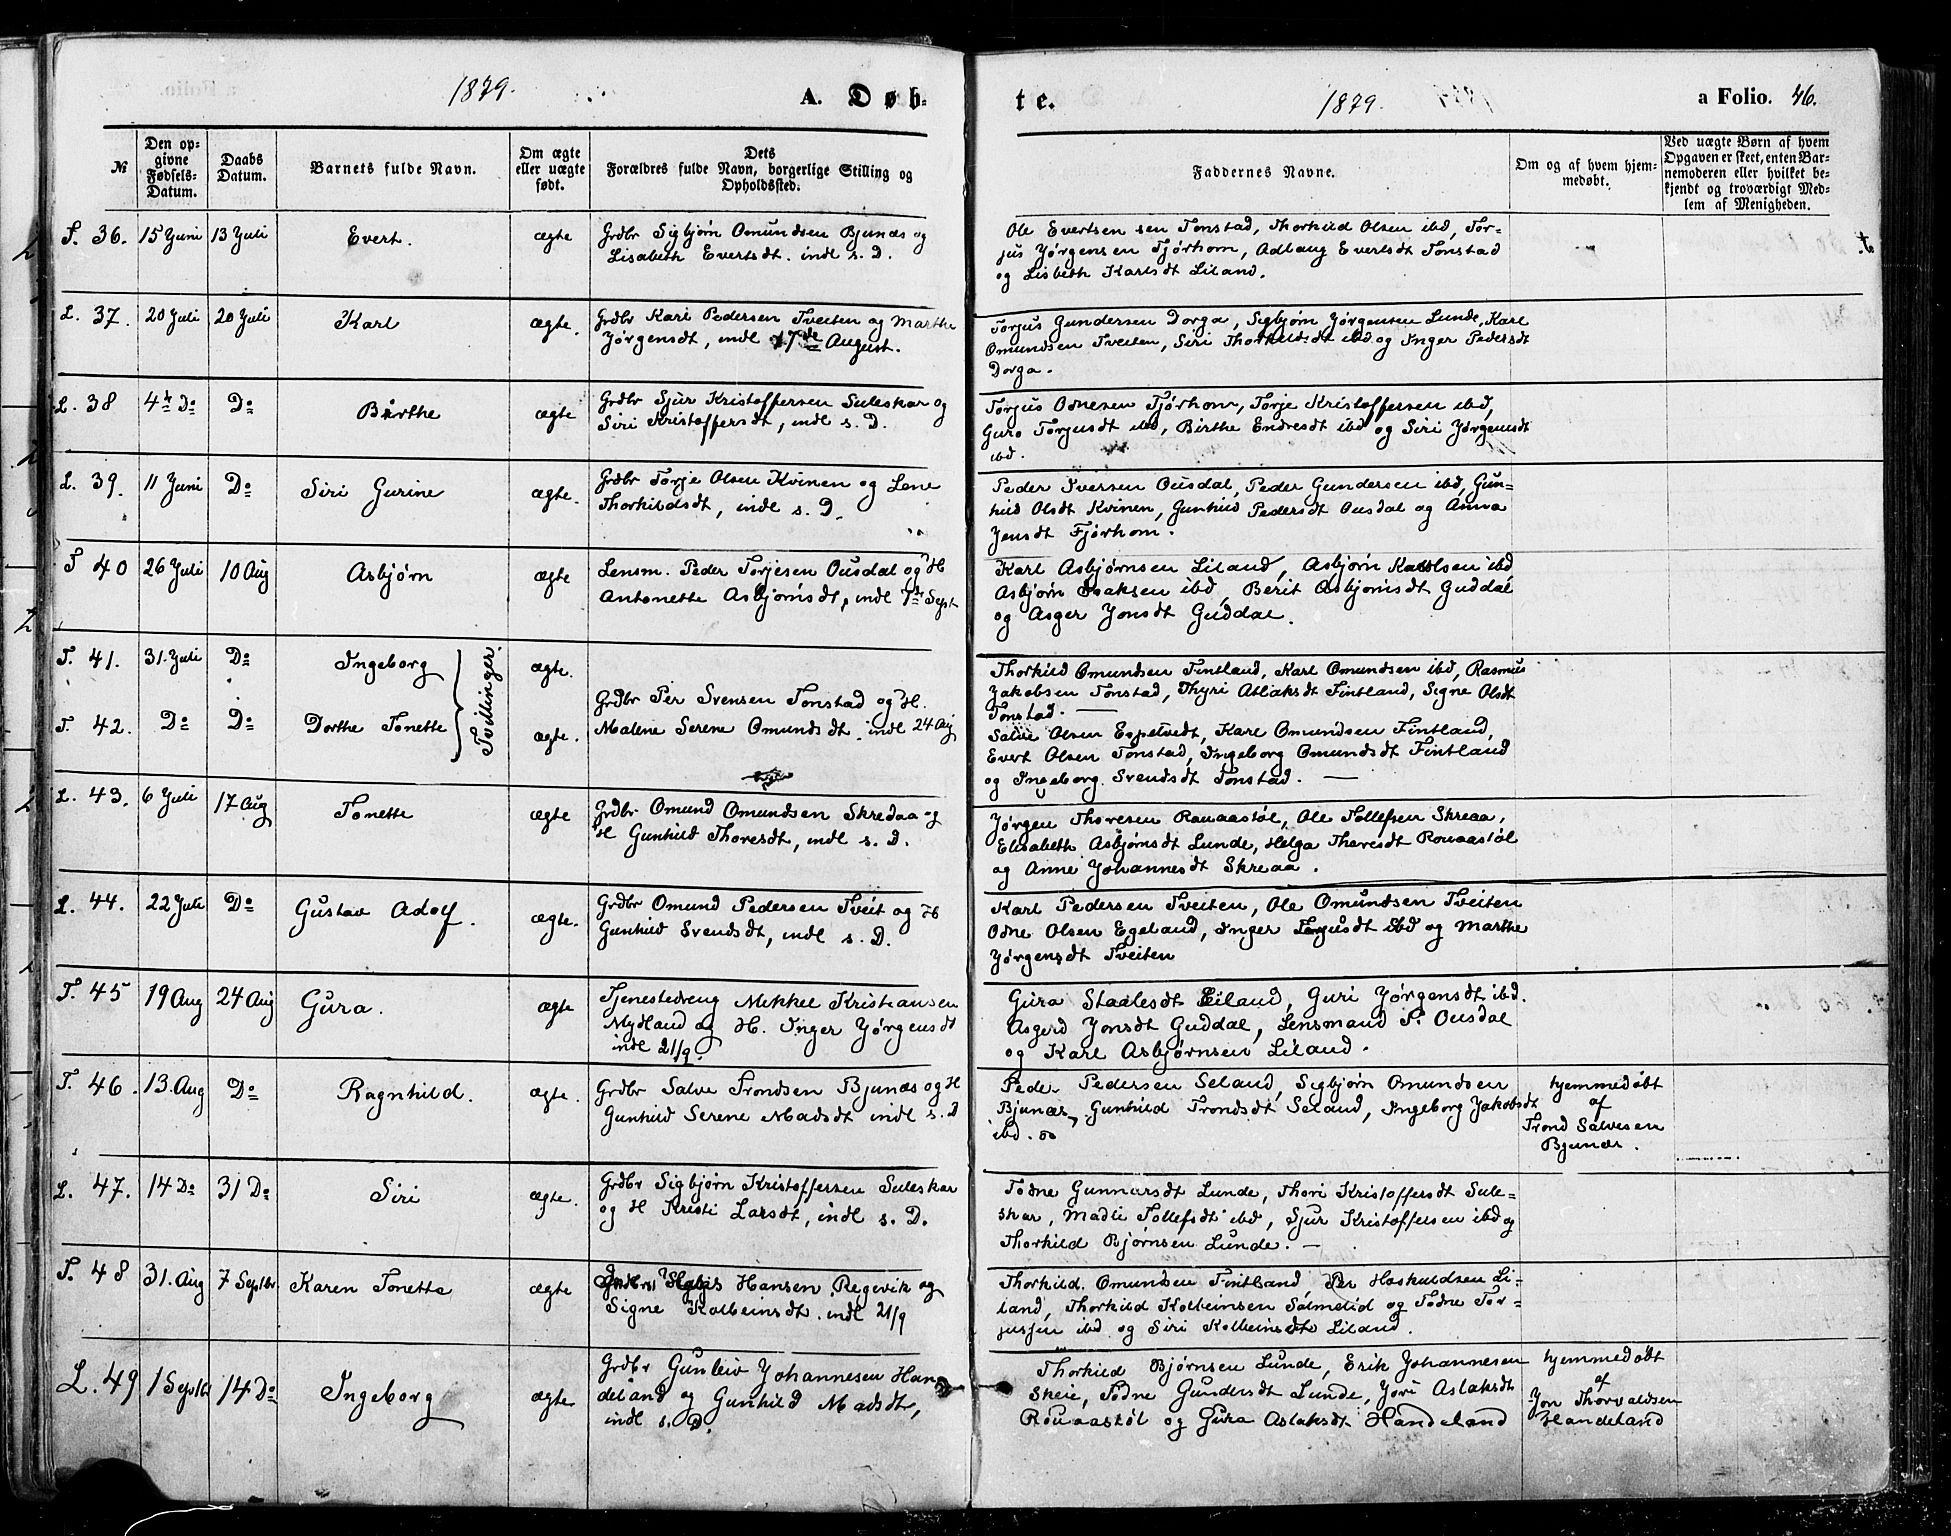 1879.
A. Døb-
te.
1879.
a Folio. 46.
№
Den op-
givne
Fødsels-
Datum.
Daabs
Datum.
Barnets fulde Navn.
Om ægte
eller uægte
født.
Dets
Forældres fulde Navn, borgerlige Stilling og
Opholdssted.
Faddernes Navne.
Om og af hvem hjem-
medøbt.
Ved uægte Børn af hvem
Opgaven er skeet, enten Bar-
nemoderen eller hvilket be-
kjendt og troværdigt Med-
lem af Menigheden.
T. 36. 15 Juni 13 Juli Evert. ægte
Grdbr Sigbjørn Omundsen Bjunæs og
Lisabeth Evertsdt. indl s. D.
Ole Evertsen sen Tonstad, Thorkild Olsen ibd, Tor-
jus Jørgensen Tjørhom, Adlaug Evertsdt Tonstad
og Lisbeth Karlsdt Liland.
L. 37. 20 Juli 20 Juli Karl ægte.
Grdbr Karl Pedersen Tveiten og Marthe
Jørgensdt, indl 17de August.
Torjus Gundersen Dorga, Sigbjørn Jørgensen Lunde, Karl
Omundsen Tveiten, Siri Thorkildsdt ibd og Inger Pedersdt
Dorga.
L. 38 4de Do Do Birthe ægte
Grdbr Sjur Kristoffersen Suleskar og
Siri Kristoffersdt, indl s. D.
Torjus Odnesen Tjørhom, Torje Kristoffersen ibd,
Guro Torjusdt ibd, Birthe Endresdt ibd og Siri Jørgensdt
ibd.
L. 39. 11 Juni Do Siri Gurine ægte.
Grdbr Torje Olsen Kvinen og Lene
Thorkildsdt, indl s. D.
Peder Iversen Ousdal, Peder Gundersen ibd, Gun-
hild Olsdt Kvinen, Gunhild Pedersdt Ousdal og Anna
Jensdt Fjørhom.
T 40 26 Juli 10 Aug Asbjørn ægte
Lensm. Peder Torjesen Ousdal og H
Antonette Asbjørnsdt, indl 7de Sept
Karl Asbjørnsen Liland, Asbjørn Karlsen ibd
Asbjørn Isaksen ibd, Berit Asbjørnsdt Guddal
og Asger Jonsdt Guddal.
T. 41. 31. Juli Do Ingeborg ægte.
Tvillinger.
T. 42. Do Do Dorthe Tonette ægte.
Grdbr Per Svensen Tonstad og H.
Malene Serene Omundsdt. indl 24 Aug
Thorkild Omundsen Fintland, Karl Omundsen ibd, Rasmus
Jakobsen Tonstad, Thyri Atlaksdt Fintland, Signe Olsdt
Tonstad.
Salve Olsen Espetvedt, Karl Omundsen Fintland,
Evert Olsen Tonstad, Ingeborg Omundsdt Fintland
og Ingeborg Svendsdt Tonstad.
L. 43. 6 Juli 17 Aug Tonette ægte
Grdbr Omund Omundsen Skredaa og
H Gunhild Thoresdt, indl s. D.
Jørgen Thoresen Rouaastøl, Ole Tollefsen Skreaa,
Elisabeth Asbjørnsdt Lunde, Helga Thoresdt Rouaastøl
og Anne Johannesdt Skreaa.
L. 44. 22 Juli Do Gustav Adolf. ægte.
Grdbr Omund Pedersen Tveit og H
Gunhild Svendsdt, indl s. D.
Karl Pedersen Tveiten, Ole Omundsen Tveiten
Odne Olsen Egeland, Inger Torjusdt ibd og Marthe
Jørgensdt Tveiten
T. 45 19 Aug 24 Aug Gura. ægte
Tjenestedreng Mikkel Kristiansen
Mydland og H. Inger Jørgensdt
indl 21/9.
Gura Staalesdt Liland, Guri Jørgensdt ibd.
Asgerd Jonsdt Guddal, Lensmand P. Ousdal
og Karl Asbjørnsen Liland.
T. 46. 13. Aug Do Ragnhild. ægte.
Grdbr Salve Trondsen Bjunæs og H
Gunhild Serene Madsdt indl s. D
Peder Pedersen Seland, Sigbjørn Omundsen
Bjunæs, Gunhild Trondsdt Seland, Ingeborg Jakobsdt
ibd.
hjemmedøbt
af
Trond Salvesen
Bjunæs.
L. 47. 14 Do 31 Do Siri ægte.
Grdbr Sigbjørn Kristoffersen Suleskar
og H Kristi Larsdt, indl s. D.
Todne Gunnarsdt Lunde, Thori Kristoffersdt Sule-
skar, Madli Tollefsdt ibd, Sjur Kristoffersen ibd og
Thorkild Bjørnsen Lunde.
T. 48 31. Aug 7 Septbr Karen Tonette ægte
Hansen Regevik og
Signe Kolbeinsdt. indl 21/9
Thorkild Omundsen Fintland, Per Hoskuldsen Li-
land, Thorkild Kolbeinsen Salmelid og Todne Tor-
jusjen ibd og Siri Kolbeinsdt Liland.
L. 49 1 Septbr 14 Do Ingeborg ægte
Grdbr Gunleiv Johannesen Han
deland og Gunhild Madsdt,
indl s. D.
Thorkild Bjørnsen Lunde, Erik Johannesen
Skeie, Todne Gundersdt Lunde, Jori Aslaksdt
Rouaastøl og Gura Aslaksdt Handeland
hjemmedøbt
af
Jon Thorvaldsen
Handeland